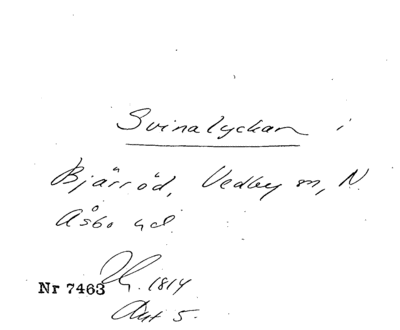 Svinalyckan i
Bjärröd, Vedby sn, N.
Åsbo hd.
1814
Nr 7463
Akt 5.